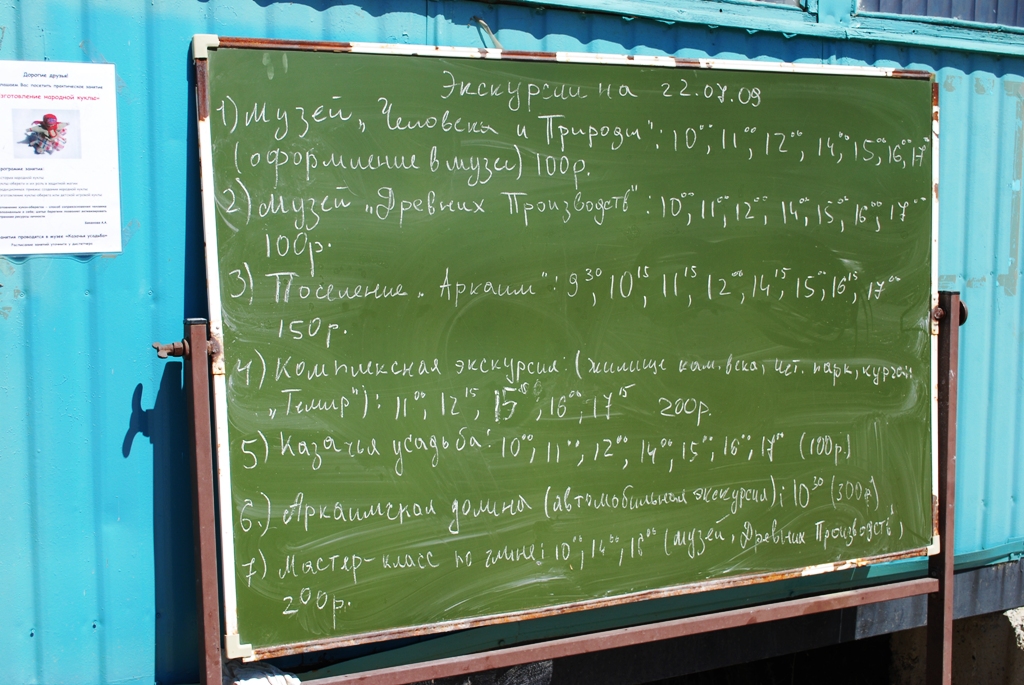 Дорогие друзья!
Вас посетить практическое занятие
народной куклы»
занятие проводится в музее «Казачья усадьба»
Экскурсии на 22.07.09
1) Музей „Человека и Природы": 10⁰⁰, 11⁰⁰, 12⁰⁰, 14⁰⁰, 15⁰⁰, 16⁰⁰, 17⁰⁰
(оформление в музее) 100р.
2) Музей „Древних Производств": 10⁰⁰, 11⁰⁰, 12⁰⁰, 14⁰⁰, 15⁰⁰, 16⁰⁰, 17⁰⁰
100р.
3) Поселение „Аркаим": 9³⁰, 10¹⁵, 11¹⁵, 12⁰⁰, 14¹⁵, 15⁰⁰, 16¹⁵, 17⁰⁰
150р.
4) Комплексная экскурсия: (жилище кам. века, ист. парк, курган
„Темир"): 11⁰⁰, 12¹⁵, 15¹⁵, 16⁰⁰, 17¹⁵ 200р.
5) Казачья усадьба: 10⁰⁰, 11⁰⁰, 12⁰⁰, 14⁰⁰, 15⁰⁰, 16⁰⁰, 17⁰⁰ (100р.)
6.) Аркаимская долина (автомобильная экскурсия): 10³⁰ (300р)
7) Мастер-класс по глине: 10⁰⁰, 14⁰⁰, 16⁰⁰ (музей „Древних Производств"
200р.